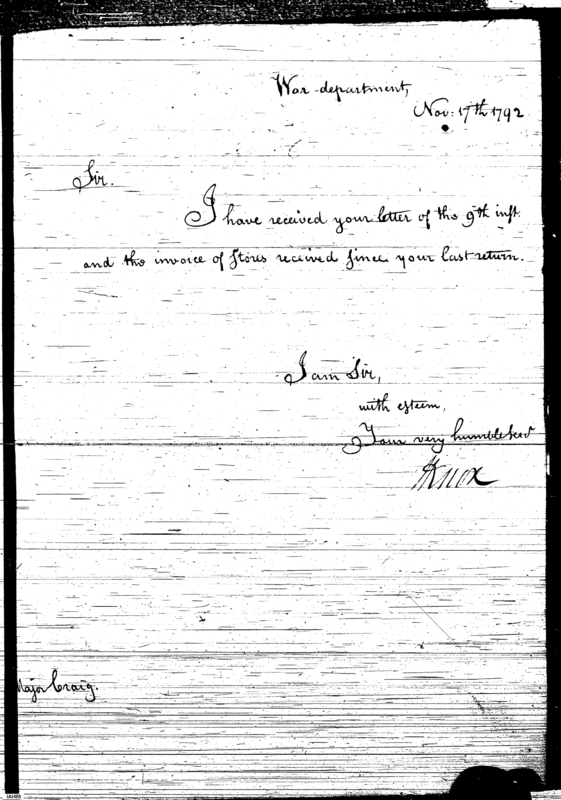 War-department,
Nov: 17th 1792
Sir.
I have received your letter of the 9th inst.
and the invoice of stores received since your last return.
I am Sir,
with esteem,
Your very humble Servt
HKnox
Major Craig.
IAHBS